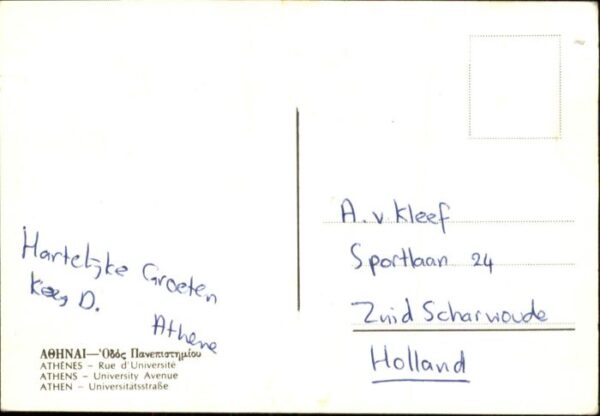 Hartelijke Groeten
Kees D.
Athene
ΑΘΗΝΑΙ—Ὁδός Πανεπιστημίου
ATHÈNES – Rue d'Université
ATHENS – University Avenue
ATHEN – Universitätsstraße
A. v Kleef
Sportlaan 24
Zuid Scharwoude
Holland